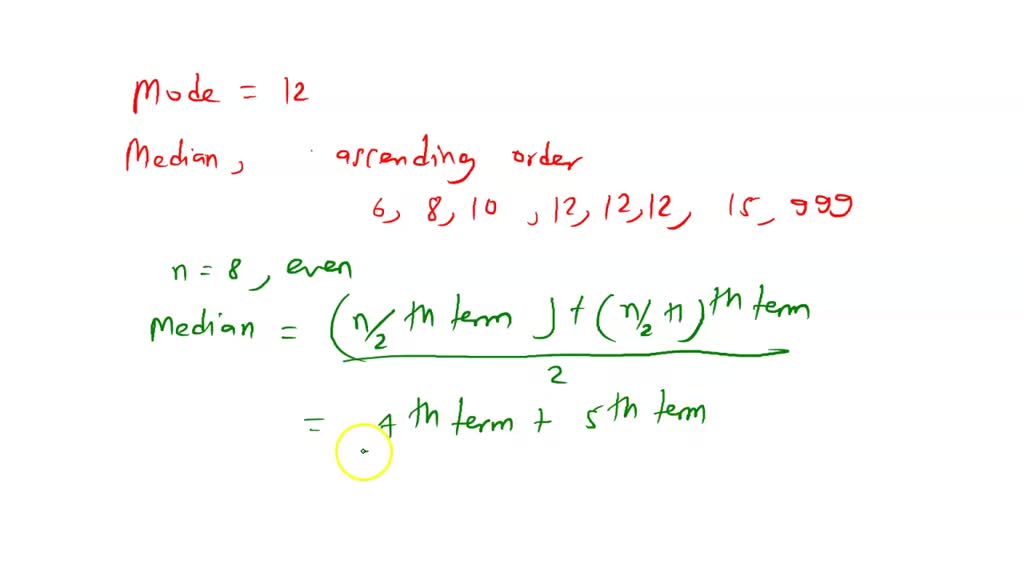 Mode = 12
Median, ascending order
6, 8, 10, 12, 12, 12, 15, 999
n = 8, even
Median = (n/2 th term) + (n/2 +1) th term
2
= 4 th term + 5 th term